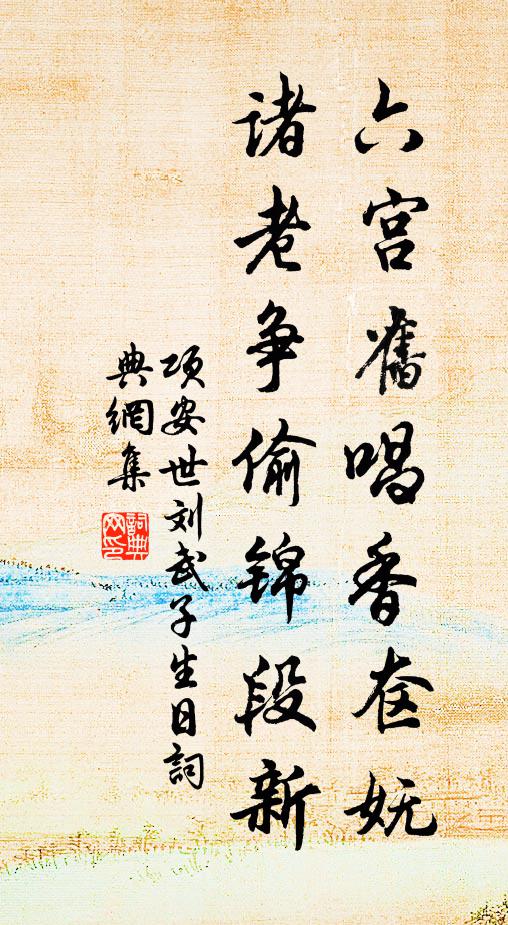 六宫舊唱香奁妩
诸老争偷锦段新
项安世刘武子生日詞
典網集
詞典
网印